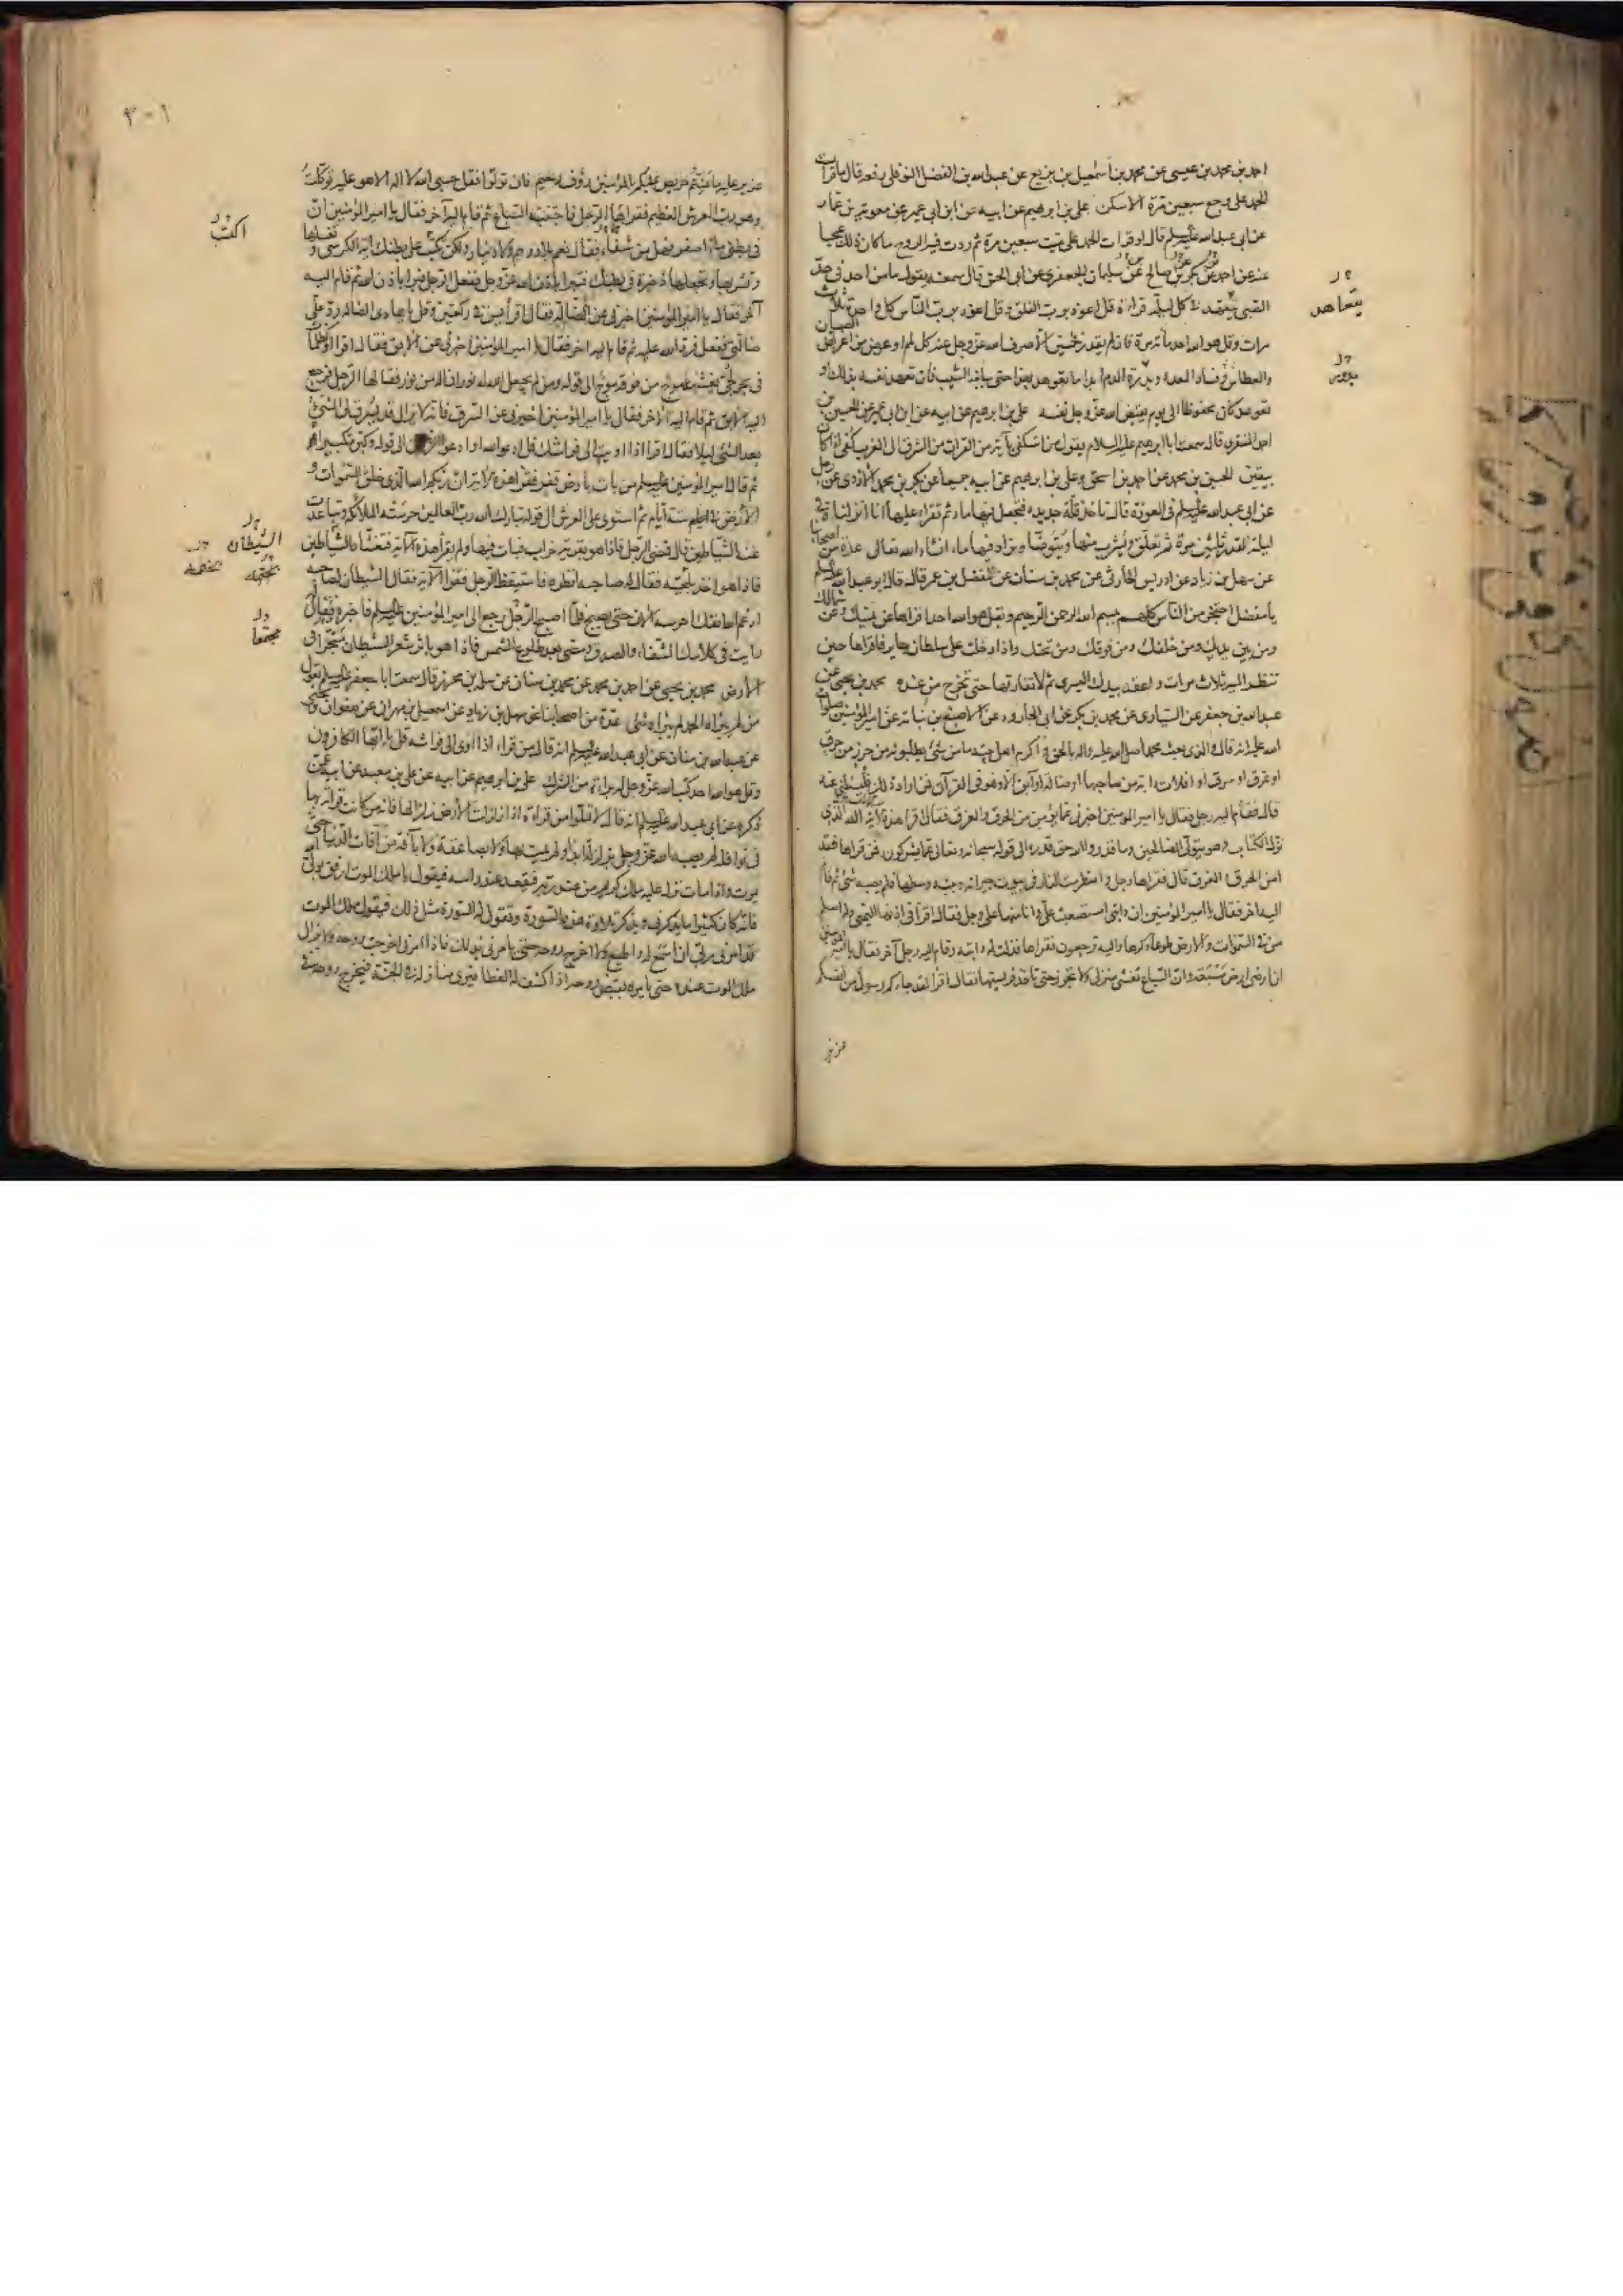 احمد بن محمد بن عيسى عن محمد بن اسمعيل بن بزيع عن عبد الله بن الفضل النوفلى رفعه قال ما قرات
الحمد على وجع سبعين مرة الا سكن على بن ابرهيم عن ابيه عن ابن ابى عمير عن معوية بن عمار
عن ابى عبد الله عليه السلم قال لو قرات الحمد على ميت سبعين مرة ثم ردت فيه الروح ما كان ذلك عجبا
عنه عن احمد عن بكر بن صالح عن سليمان الجعفرى عن ابى الحسن قال سمعته يقول ما من احد فى حد
الصبى يتعهد فى كل ليلة قراءة قل اعوذ برب الفلق وقل اعوذ برب الناس كل واحدة ثلاث
مرات وقل هو الله احد مائة مرة فان لم يقدر فخمسين الا صرف الله عز وجل عنه كل لمم او عرض من اعراض الصبيان
والعطاش وفساد المعدة و الدم ابدا ما تعوهد بهذا حتى يبلغه الشيب فان تعهد نفسه بذلك او
تعوهد كان محفوظا الى يوم يقبض الله عز وجل نفسه على بن ابرهيم عن ابيه عن ابن ابى عمير عن الحسين بن
احمد المنقرى قال سمعت ابا ابرهيم عليه السلام يقول من استكفى بآية من القران من الشرق الى الغرب كفى اذا كان
بيقين الحسين بن محمد عن احمد بن اسحق وعلى بن ابرهيم عن ابيه جميعا عن بكر بن محمد الازدى عن رجل
عن ابى عبد الله عليه السلم فى العوذة قال تاخذ قلة جديدة فتجعل فيها ماء ثم تقراء عليها انا انزلناه فى
ليلة القدر ثلثين مرة ثم تعلق ويشرب منها ويتوضا ويزاد فيها ماء انشاء الله تعالى عدة من اصحابنا
عن سهل بن زياد عن ادريس الحارثى عن محمد بن سنان عن مفضل بن عمر قال قال ابو عبد الله عليه السلم
يا مفضل احتجز من الناس كلهم ببسم الله الرحمن الرحيم وبقل هو الله احد اقراها عن يمينك وعن شمالك
ومن بين يديك ومن خلفك ومن فوقك ومن تحتك واذا دخلت على سلطان جاير فاقراها حين
تنظر اليه ثلاث مرات واعقد بيدك اليسرى ثم لا تفارقها حتى تخرج من عنده محمد بن يحيى عن
عبد الله بن جعفر عن السيارى عن محمد بن بكر عن ابى الجارود عن الاصبغ بن نباتة عن امير المؤمنين صلوات
الله عليه انه قال والذى بعث محمدا صلى الله عليه واله بالحق واكرم اهل بيته ما من شئ يطلبونه من حرز من حرق
او غرق او سرق او افلات دابة من صاحبها او ضالة او آبق الا وهو فى القرآن فمن اراد ذلك فليسئلنى عنه
قال فقام اليه رجل فقال يا امير المؤمنين اخبرنى عما يؤمن من الحرق والغرق فقال اقرا هذه الآية الله الذى
نزل الكتاب وهو يتولى الصالحين وما قدروا الله حق قدره الى قوله سبحانه وتعالى عما يشركون فمن قراها فقد
امن الحرق و الغرق قال فقراها رجل واضطرمت النار فى بيوت جيرانه وبيته وسطها فلم يصبه شئ ثم قام
اليه اخر فقال يا امير المؤمنين ان دابتى استصعبت على وانا منها على وجل فقال اقرا فى اذنها اليمنى وله اسلم
من فى السموات والارض طوعا وكرها واليه ترجعون فقراها فذلت له دابته وقام اليه رجل آخر فقال يا امير المؤمنين
ان ارضى ارض مسبعة وان السباع تغشى منزلى ولا تجوز حتى تاخذ فريستها فقال اقرا لقد جاءكم رسول من انفسكم
عزيز
يتعاهد
عزيز عليه ما عنتم حريص عليكم بالمؤمنين رؤف رحيم فان تولوا فقل حسبى الله لا اله الا هو عليه توكلت
وهو رب العرش العظيم فقراهما الرجل فاجتنبته السباع ثم قام اليه آخر فقال يا امير المؤمنين ان
فى بطنى ماء اصفر فهل من شفاء فقال نعم بلا درهم ولا دينار ولكن تكتب على بطنك آية الكرسى و تغسلها
وتشربها وتجعلها ذخيرة فى بطنك فتبرا باذن الله عز وجل ففعل الرجل فبرا باذن الله ثم قام اليه
آخر فقال يا امير المؤمنين اخبرنى عن الضالة فقال اقرا يس فى ركعتين وقل يا هادى الضالة رد على
ضالتى ففعل فرد الله عليه ثم قام اليه اخر فقال يا امير المؤمنين اخبرنى عن الابق فقال اقرا او كظلمات
فى بحر لجى يغشيه موج من فوقه موج الى قوله ومن لم يجعل الله له نورا فما له من نور فقالها الرجل فرجع
اليه الابق ثم قام اليه الآخر فقال يا امير المؤمنين اخبرنى عن السرق فانه لا يزال قد يسرق لى الشئ
بعد الشئ ليلا فقال اقرا اذا اويت الى فراشك قل ادعوا الله او ادعوا الرحمن الى قوله وكبره تكبيرا
ثم قال امير المؤمنين عليه السلم من بات بارض قفر فقرا هذه الآية ان ربكم الله الذى خلق السموات و
الارض فى ستة ايام ثم استوى على العرش الى قوله تبارك الله رب العالمين حرسته الملائكة وتباعدت
عنه الشياطين قال فمضى الرجل فاذا هو بقرية خراب فبات فيها ولم يقرا هذه الآية فتغشاه الشياطين
فاذا هو اخذ بلحيته فقال له صاحبه انظره فاستيقظ الرجل فقرا الآية فقال الشيطان لصاحبه
ارغم الله انفك احرسه الان حتى يصبح فلما اصبح الرجل رجع الى امير المؤمنين عليه السلم فاخبره فقال
رايت فى كلامك الشفاء والصدق ومضى بعد طلوع الشمس فاذا هو باثر شعر الشيطان منجرا فى
الارض محمد بن يحيى عن احمد بن محمد عن محمد بن سنان عن سلمة بن محرز قال سمعت ابا جعفر عليه السلم يقول
من لم يبراه الحمد لم يبراه شئ عدة من اصحابنا عن سهل بن زياد عن اسمعيل بن مهران عن صفوان بن يحيى
عن عبد الله بن سنان عن ابى عبد الله عليه السلم انه قال من قراء اذا اوى الى فراشه قل يا ايها الكافرون
وقل هو الله احد كتب الله عز وجل له براءة من الشرك على بن ابرهيم عن ابيه عن على بن معبد عن ابيه عمن
ذكره عن ابى عبد الله عليه السلم انه قال لا تملوا من قراءة اذا زلزلت الارض زلزالها فانه من كانت قراءته بها
فى نوافله لم يصبه الله عز وجل بزلزلة ابدا ولم يمت بها ولا بصاعقة ولا بآفة من آفات الدنيا حتى
يموت واذا مات نزل عليه ملك كريم من عند ربه فيقعد عند راسه فيقول يا ملك الموت ارفق بولى الله
فانه كان كثيرا ما يذكرنى ويذكر تلاوة هذه السورة وتقول له السورة مثل ذلك فيقول ملك الموت
قد امرنى ربى ان اسمع له واطيع ولا اخرج روحه حتى يامرنى بذلك فاذا امرنى اخرجت روحه ولا يزال
ملك الموت عنده حتى يامره بقبض روحه اذا كشف له الغطا فيرى منازله فى الجنة فيخرج روحه فى
اكتب
الشيطان
مجتمعا